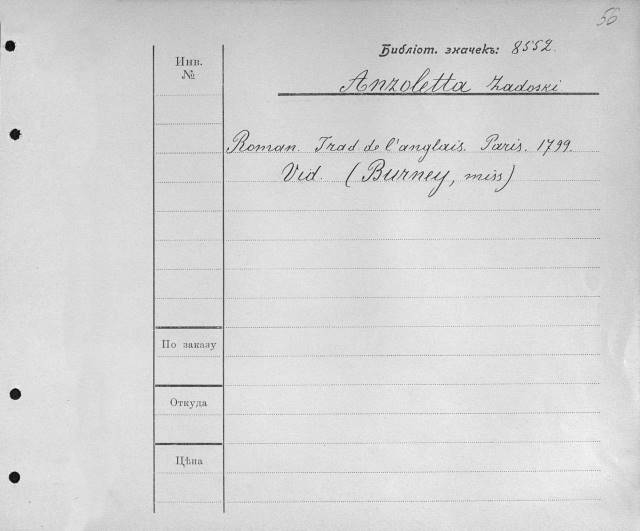 56
Библіот. значекъ: 8552.
Инв.
№
Anzoletta Zadoski
Roman. Trad de l'anglais. Paris. 1799.
Vid. (Burney, miss)
По заказу
Откуда
Цѣна